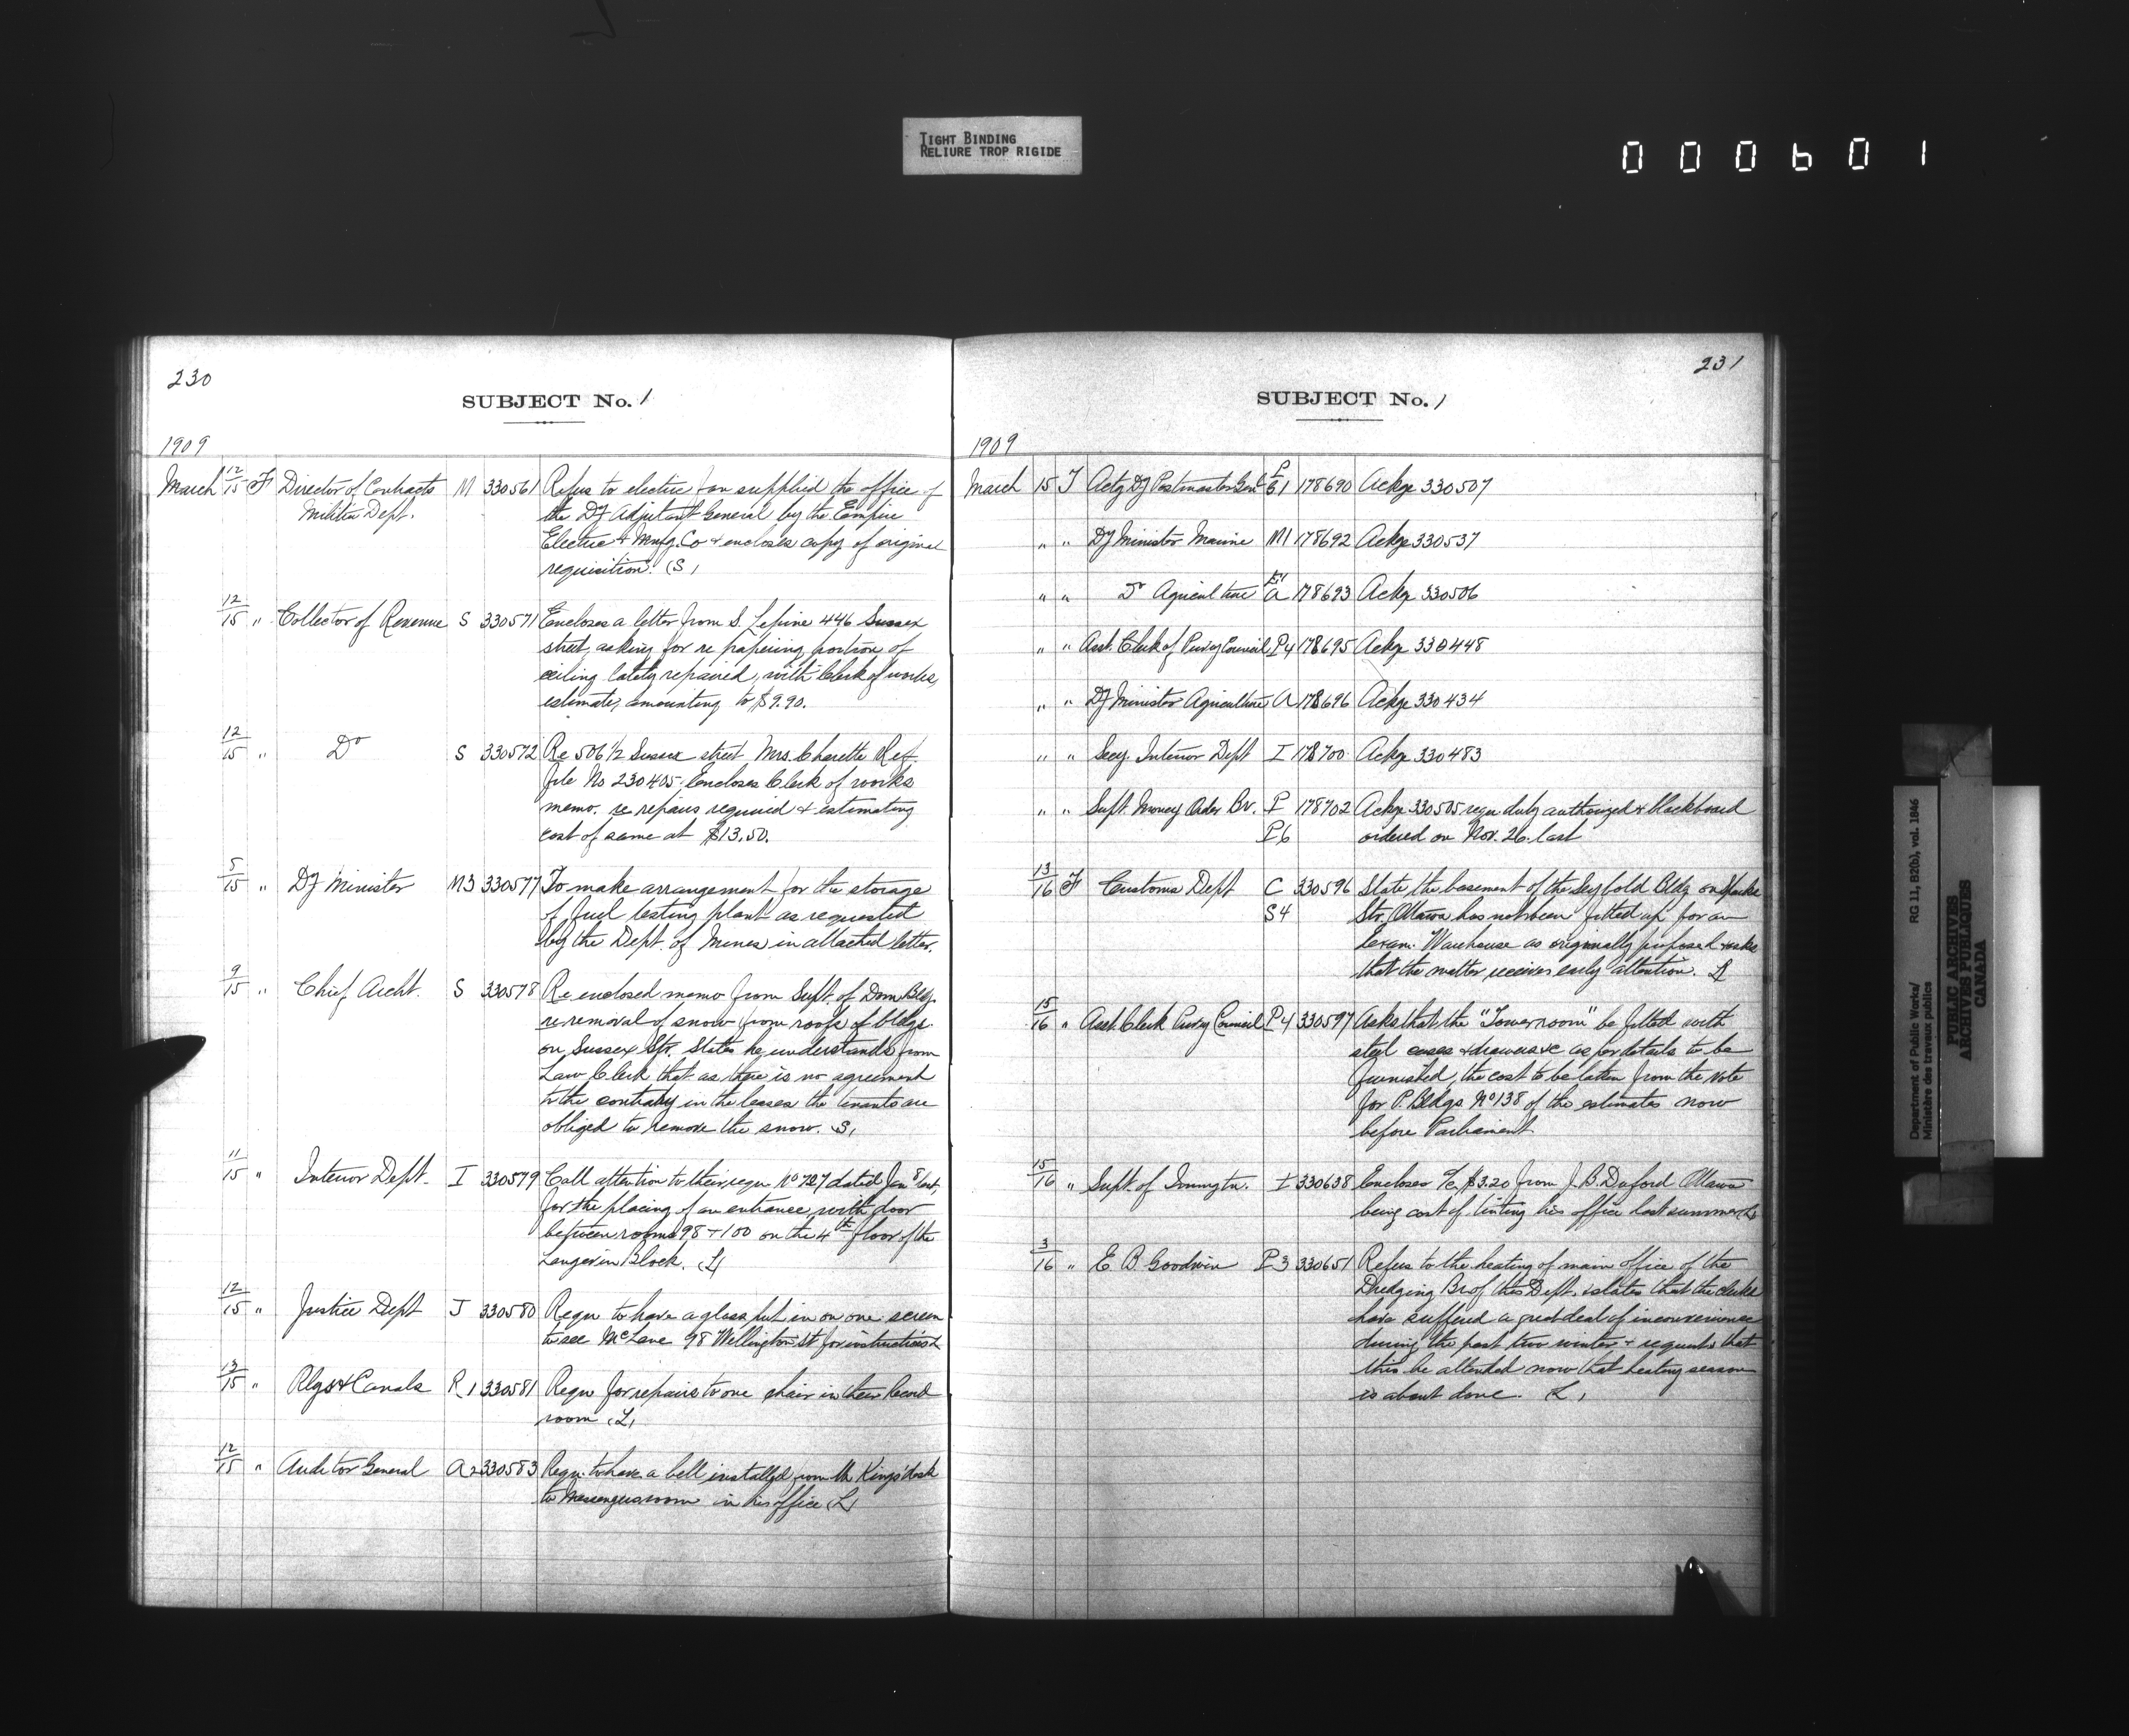 TIGHT BINDING
RELIURE TROP RIGIDE
000601
230
SUBJECT No. 1
1909
March 12/15 F Director of Contracts M 330561 Refers to electric fan supplied the office of
Militia Dept. the Dy Adjutant General by the Empire
Electric & Mnfg. Co & encloses copy of original
requisition. (S)
12/15 " Collector of Revenue S 330571 Encloses a letter from S. Lepine 446 Sussex
street, asking for re papering portion of
ceiling lately repaired, with Clerk of works,
estimate, amounting to $9.90.
12/15 " Do S 330572 Re 506 1/2 Sussex street Mrs. Charette Ref.
file No 230405. Encloses Clerk of works
memo. re repairs required & estimating
cost of same at $13.50.
5/15 " Dy Minister M3 330577 To make arrangement for the storage
of fuel testing plant as requested
by the Dept. of Mines in attached letter.
9/15 " Chief Archt. S 330578 Re enclosed memo from Supt. of Dom Bldg.
re removal of snow from roofs of bldgs.
on Sussex Str. States he understands from
Law Clerk that as there is no agreement
to the contrary in the leases the tenants are
obliged to remove the snow. (S)
11/15 " Interior Dept. I 330579 Call attention to their requ No 727 dated Jan 8 last,
for the placing of an entrance with door
between rooms 98 + 100 on the 4th floor of the
Langevin Block. (L)
12/15 " Justice Dept J 330580 Requ to have a glass put in on one screen
to see McLane 98 Wellington St for instructions L
13/15 " Rlys & Canals R1 330581 Requ for repairs to one chair in their Record
room (L)
12/15 " Auditor General A2 330583 Requ. to have a bell installed from Mr Kings' desk
to Messengers room in his office (L)
231
SUBJECT No. 1
1909
March 15 T Actg Dy Postmaster Genl P61 178690 Ackge 330507
" " Dy Minister Marine M1 178692 Ackge 330537
" " Do Agriculture A 178693 Ackge 330506
" " Asst. Clerk of Privy Council P4 178695 Ackge 330448
" " Dy Minister Agriculture A 178696 Ackge 330434
" " Secy. Interior Dept I 178700 Ackge 330483
" " Supt. Money Order Br. P 178702 Ackge 330505 requ. duly authorized & blackboard
P6 ordered on Nov. 26. last
13/16 F Customs Dept C 330596 State the basement of the Seybold Bldg on Sparks
S4 Str. Ottawa has not been fitted up for an
Exam. Warehouse as originally proposed & asks
that the matter receives early attention. L
15/16 " Asst. Clerk Privy Council P4 330597 Asks that the "Tower room" be fitted with
steel cases & drawers &c as per details to be
furnished, the cost to be taken from the vote
for P. Bldgs No 138 of the estimates now
before Parliament.
15/16 " Supt. of Immgtn. I 330638 Encloses a/c $3.20 from J. B. Duford Ottawa
being cost of tinting his office last summer L
3/16 " E. B. Goodwin P3 330651 Refers to the heating of main office of the
Dredging Br of this Dept. & states that the clerks
have suffered a great deal of inconvenience
during the past two winters & requests that
this be attended now that heating season
is about done. (L)
Department of Public Works/ RG 11, B2(b), vol. 1846
Ministère des travaux publics
PUBLIC ARCHIVES
ARCHIVES PUBLIQUES
CANADA